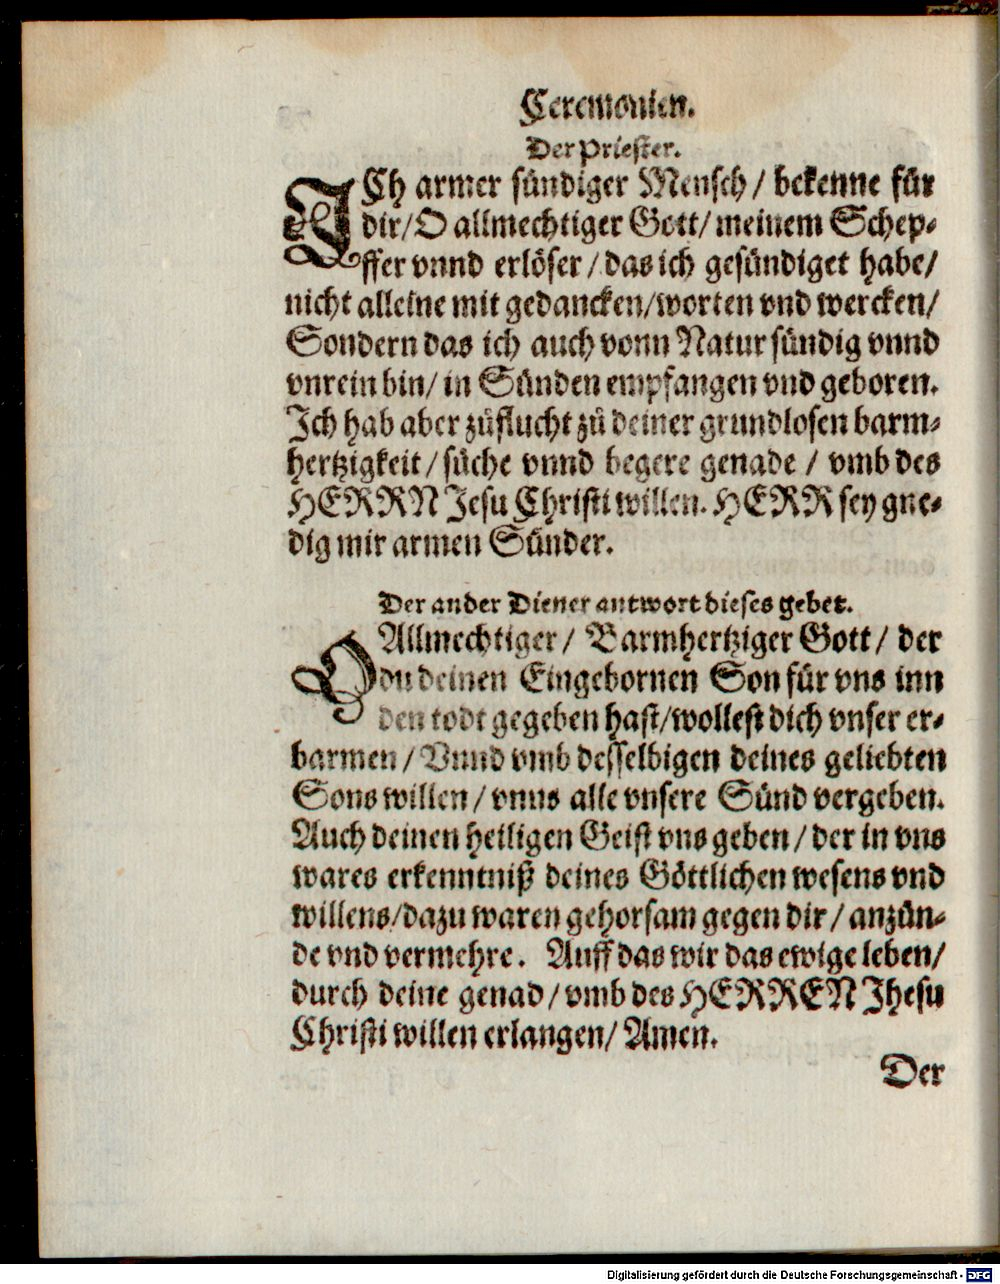 Ceremonien.
Der Priester.
ICh armer sündiger Mensch / bekenne für
dir/ O allmechtiger Gott/ meinem Schep-
ffer vnnd erlöser / das ich gesündiget habe/
nicht alleine mit gedancken/worten vnd wercken/
Sondern das ich auch vonn Natur sündig vnnd
vnrein bin/ in Sünden empfangen vnd geboren.
Ich hab aber zůflucht zů deiner grundlosen barm-
hertzigkeit / sůche vnnd begere genade / vmb des
HERRN Jesu Christi willen. HERR sey gne-
dig mir armen Sünder.
Der ander Diener antwort dieses gebet.
O Allmechtiger / Barmhertziger Gott / der
du deinen Eingebornen Son für vns inn
den todt gegeben hast/wollest dich vnser er-
barmen / Vnnd vmb desselbigen deines geliebten
Sons willen / vnns alle vnsere Sünd vergeben.
Auch deinen heiligen Geist vns geben / der in vns
wares erkenntniß deines Göttlichen wesens vnd
willens/dazu waren gehorsam gegen dir / anzün-
de vnd vermehre. Auff das wir das ewige leben/
durch deine genad / vmb des HERREN Jhesu
Christi willen erlangen/ Amen.
Der
Digitalisierung gefördert durch die Deutsche Forschungsgemeinschaft - DFG